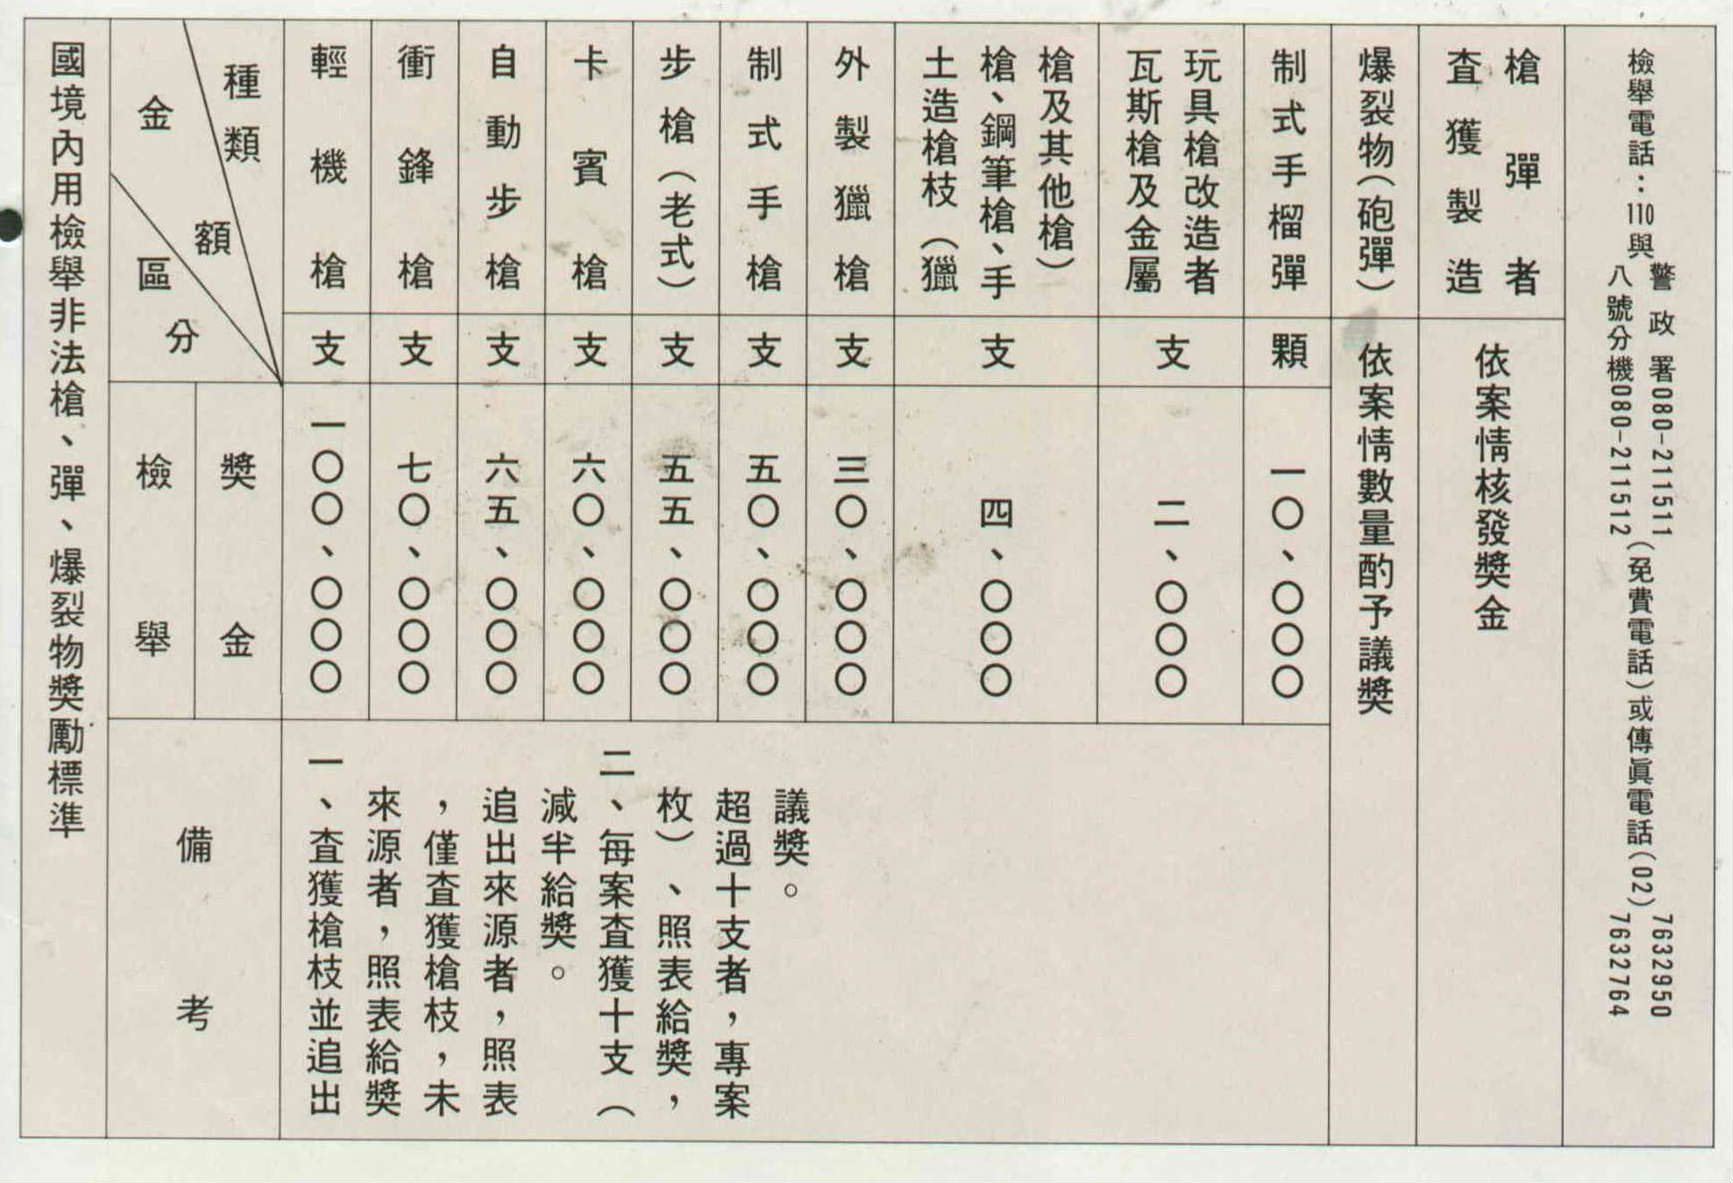 國境內用檢舉非法槍、彈、爆裂物獎勵標準
種類
金額
區分
檢舉
獎金
備考
輕機槍
支
一〇〇、〇〇〇
衝鋒槍
支
七〇、〇〇〇
自動步槍
支
六五、〇〇〇
卡賓槍
支
六〇、〇〇〇
步槍（老式）
支
五五、〇〇〇
制式手槍
支
五〇、〇〇〇
外製獵槍
支
三〇、〇〇〇
土造槍枝（獵
槍、鋼筆槍、手
槍及其他槍）
支
四、〇〇〇
瓦斯槍及金屬
玩具槍改造者
支
二、〇〇〇
制式手榴彈
顆
一〇、〇〇〇
爆裂物（砲彈）
依案情數量酌予議獎
査獲製造
槍彈者
依案情核發獎金
一、査獲槍枝並追出
來源者，照表給獎
，僅査獲槍枝，未
追出來源者，照表
減半給獎。
二、每案査獲十支（
枚）、照表給獎，
超過十支者，專案
議獎。
檢舉電話：110與
八號分機080-211512
警政署080-211511
（免費電話）或傳眞電話(02)
7632764
7632950